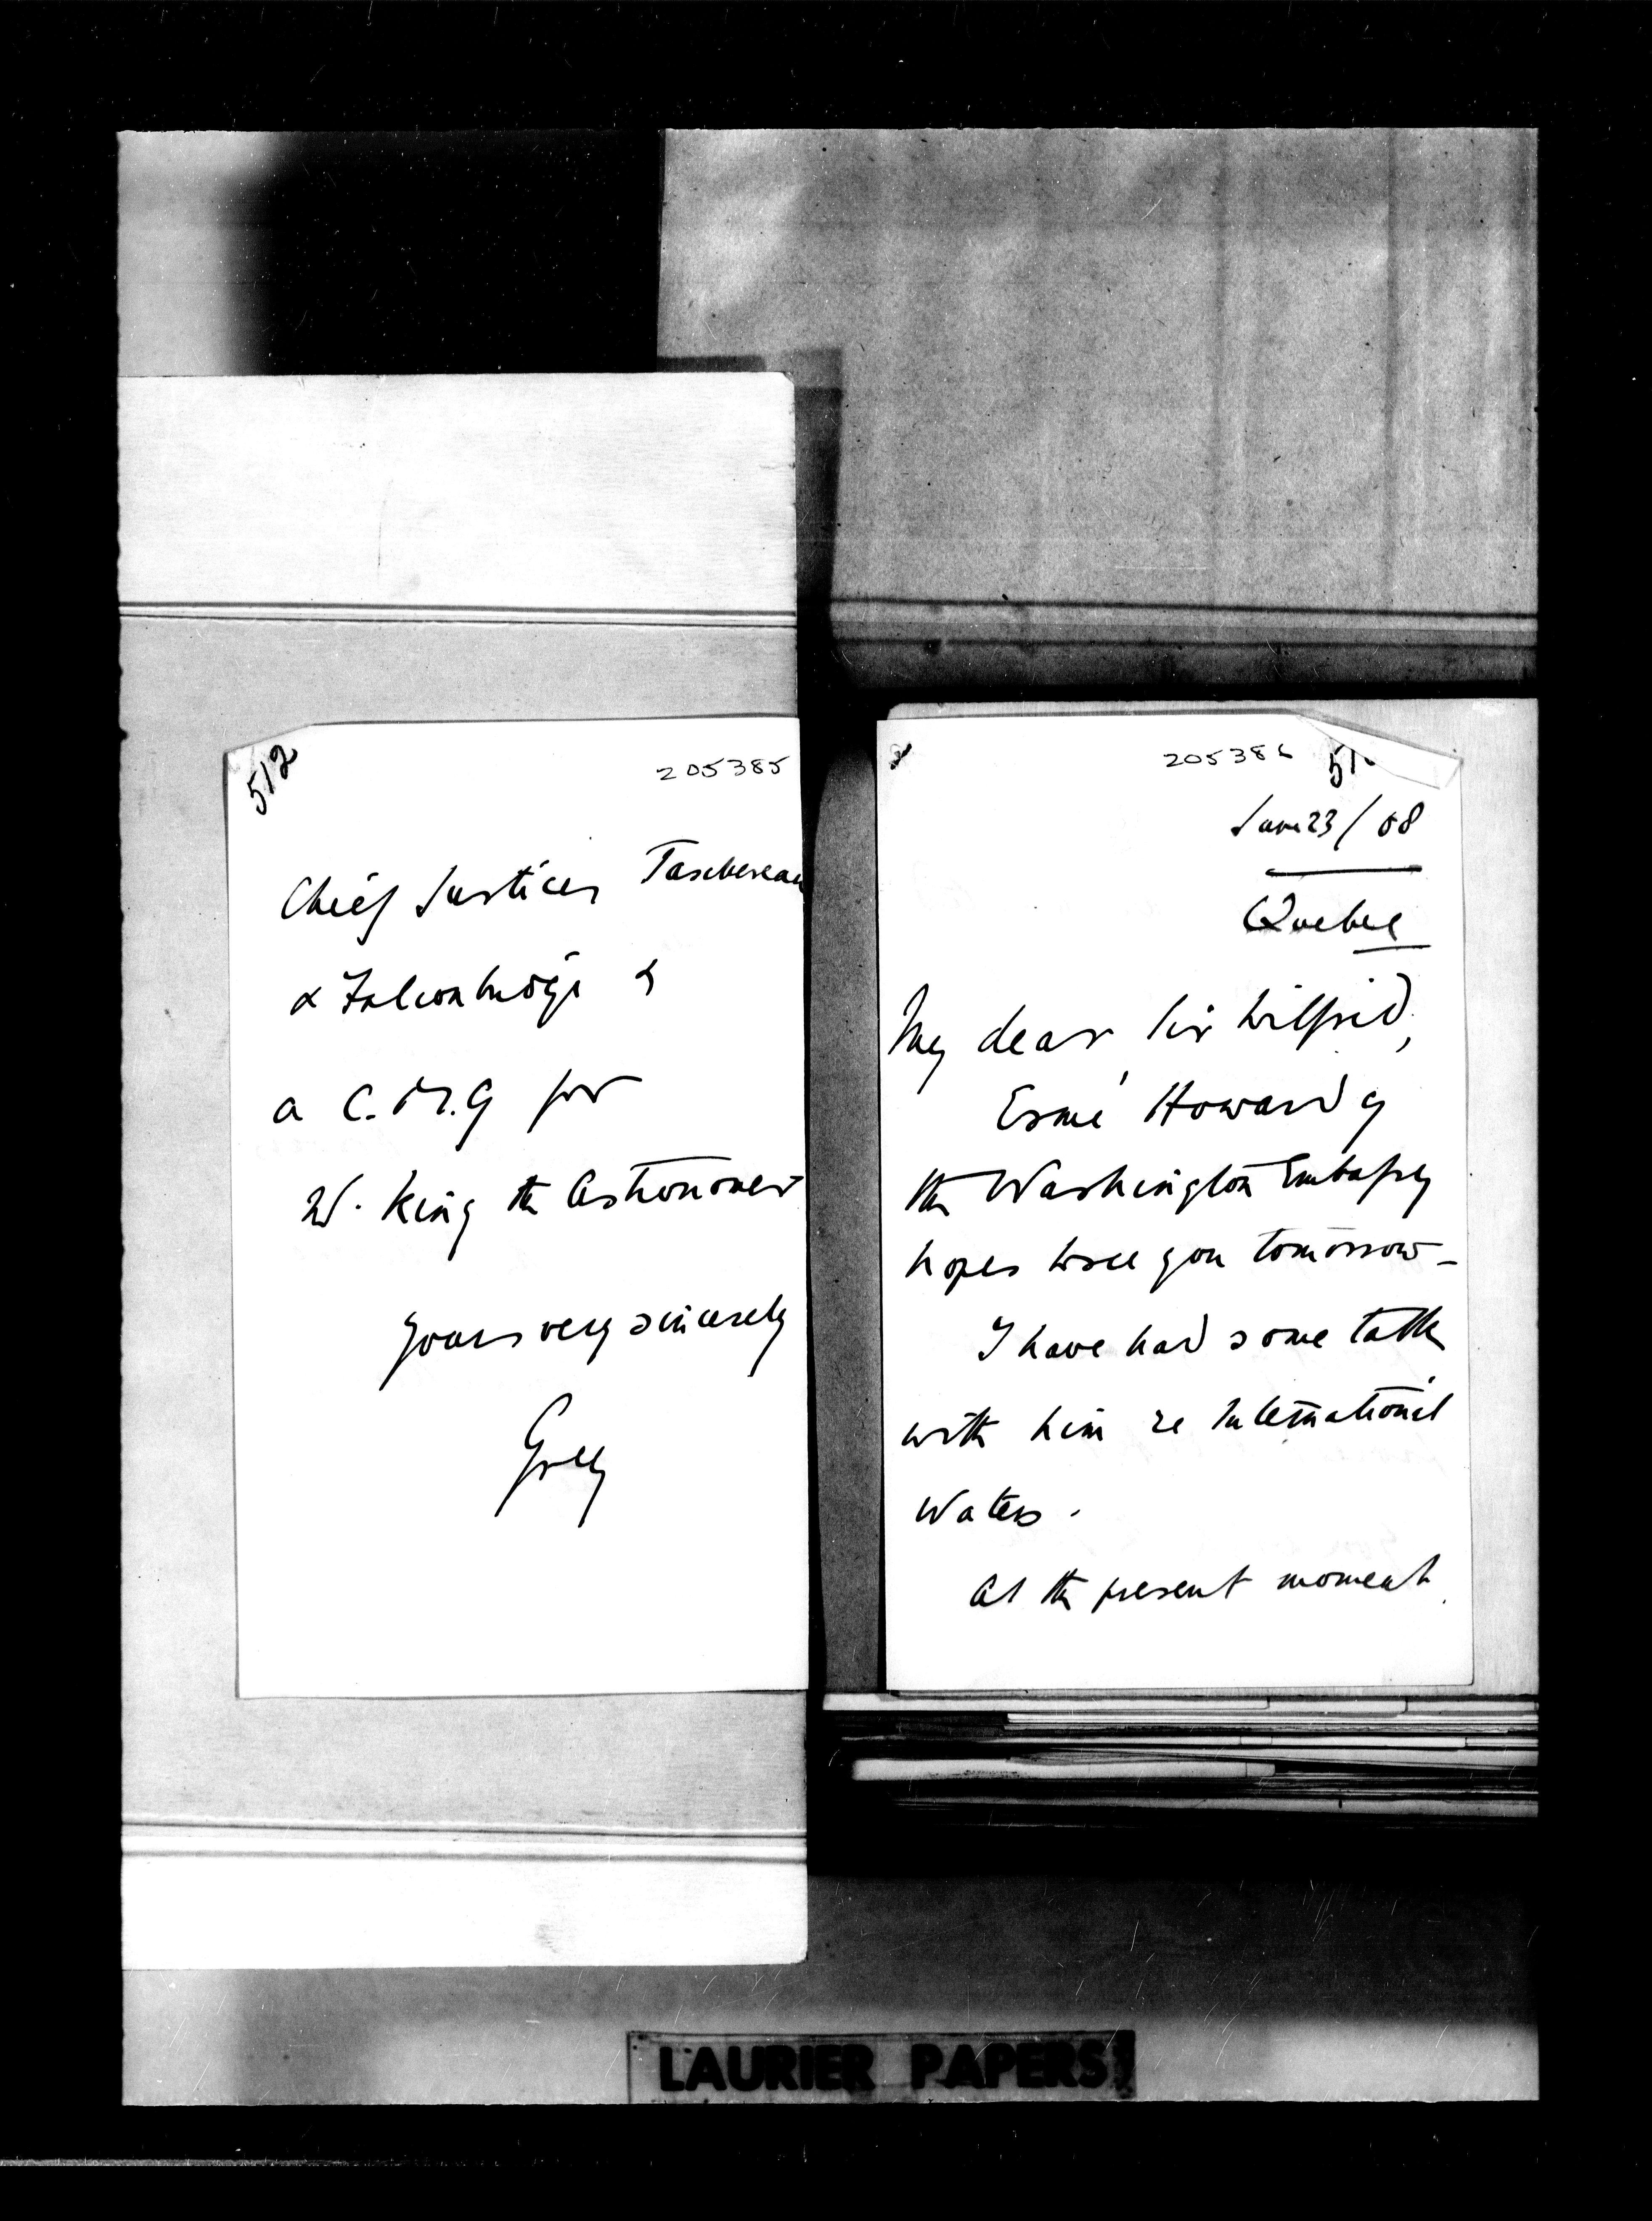 512
205385
Chief Justices Taschereau
& Falconbridge &
a C.M.G for
W. King the Astronomer
Yours very sincerely
Grey
205386
51
June 23/08
Quebec
My dear Sir Wilfrid,
Esmé Howard of
the Washington Embassy
hopes to see you tomorrow -
I have had some talk
with him re International
Waters.
At the present moment
LAURIER PAPERS